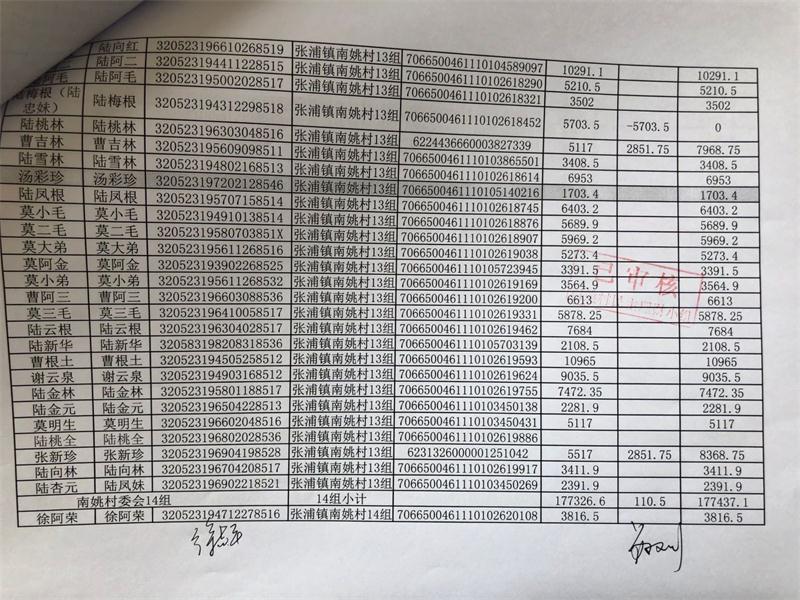 陆向红 320523196610268519 张浦镇南姚村13组 7066500461110104589097 10291.1 10291.1
陆阿二 320523194411228515 张浦镇南姚村13组 7066500461110102618290 5210.5 5210.5
阿毛 陆阿毛 320523195002028517 张浦镇南姚村13组 7066500461110102618321 3502 3502
梅根（陆
忠妹） 陆梅根 320523194312298518 张浦镇南姚村13组 7066500461110102618452 5703.5 -5703.5 0
陆桃林 陆桃林 320523196303048516 张浦镇南姚村13组 6224436660003827339 5117 2851.75 7968.75
曹吉林 曹吉林 320523195609098511 张浦镇南姚村13组 7066500461110103865501 3408.5 3408.5
陆雪林 陆雪林 320523194802168513 张浦镇南姚村13组 7066500461110102618614 6953 6953
汤彩珍 汤彩珍 320523197202128546 张浦镇南姚村13组 7066500461110105140216 1703.4 1703.4
陆凤根 陆凤根 320523195707158514 张浦镇南姚村13组 7066500461110102618745 6403.2 6403.2
莫小毛 莫小毛 320523194910138514 张浦镇南姚村13组 7066500461110102618876 5689.9 5689.9
莫二毛 莫二毛 32052319580703851X 张浦镇南姚村13组 7066500461110102618907 5969.2 5969.2
莫大弟 莫大弟 320523195611268516 张浦镇南姚村13组 7066500461110102619038 5273.4 5273.4
莫阿金 莫阿金 320523193902268525 张浦镇南姚村13组 7066500461110105723945 3391.5 3391.5
莫小弟 莫小弟 320523195611268532 张浦镇南姚村13组 7066500461110102619169 3564.9 3564.9
曹阿三 曹阿三 320523196603088536 张浦镇南姚村13组 7066500461110102619200 6613 6613
莫三毛 莫三毛 320523196410058517 张浦镇南姚村13组 7066500461110102619331 5878.25 5878.25
陆云根 陆云根 320523196304028517 张浦镇南姚村13组 7066500461110102619462 7684 7684
陆新华 陆新华 320583198208318536 张浦镇南姚村13组 7066500461110105703139 2108.5 2108.5
曹根土 曹根土 320523194505258512 张浦镇南姚村13组 7066500461110102619593 10965 10965
谢云泉 谢云泉 320523194903168512 张浦镇南姚村13组 7066500461110102619624 9035.5 9035.5
陆金林 陆金林 320523195801188517 张浦镇南姚村13组 7066500461110102619755 7472.35 7472.35
陆金元 陆金元 320523196504228513 张浦镇南姚村13组 7066500461110103450138 2281.9 2281.9
莫明生 莫明生 320523196602048516 张浦镇南姚村13组 7066500461110103450431 5117 5117
陆桃全 陆桃全 320523196802028536 张浦镇南姚村13组 7066500461110102619886
张新珍 张新珍 320523196904198528 张浦镇南姚村13组 6231326000001251042 5517 2851.75 8368.75
陆向林 陆向林 320523196704208517 张浦镇南姚村13组 7066500461110102619917 3411.9 3411.9
陆杏元 陆凤妹 320523196902218521 张浦镇南姚村13组 7066500461110103450269 2391.9 2391.9
南姚村委会14组 14组小计 177326.6 110.5 177437.1
徐阿荣 徐阿荣 320523194712278516 张浦镇南姚村14组 7066500461110102620108 3816.5 3816.5
已审核